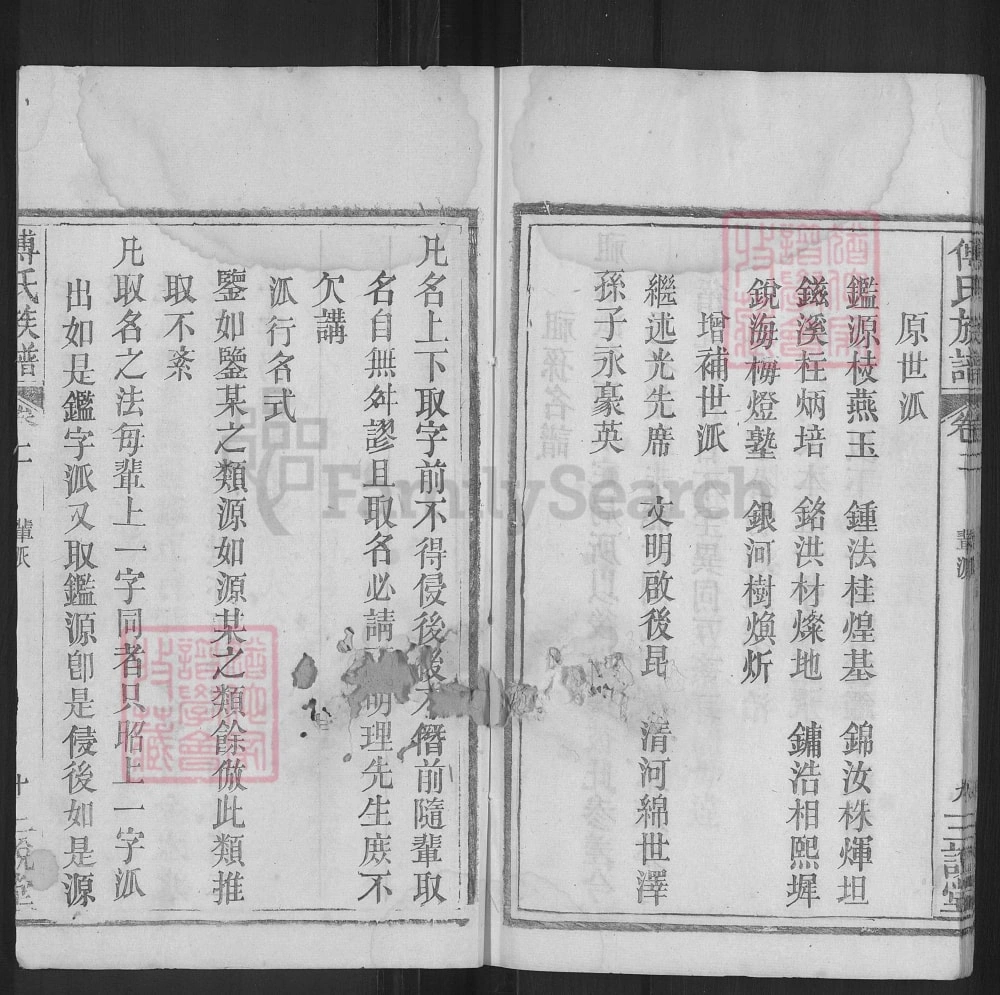 傅氏族譜 卷二 輩派 九 三謨堂
原世派
鑑源枝燕玉 鍾法桂煌基 錦汝株煇坦
鎡溪枉炳培 銘洪材燦地 鏞浩相熙墀
銳海梅燈塾 銀河樹煥炘
增補世派
繼述光先席 文明啟後昆 清河綿世澤
孫子永豪英
凢名上下取字前不得侵後後不僭前隨輩取
名自無舛謬且取名必請明理先生庶不
欠講
派行名式
鑒如鑒某之類源如源某之類餘倣此類推
取不紊
凢取名之法每輩上一字同者只昭上一字派
出如是鑑字派又取鑑源卽是侵後如是源
傅氏族譜 卷二 輩派 十
FamilySearch